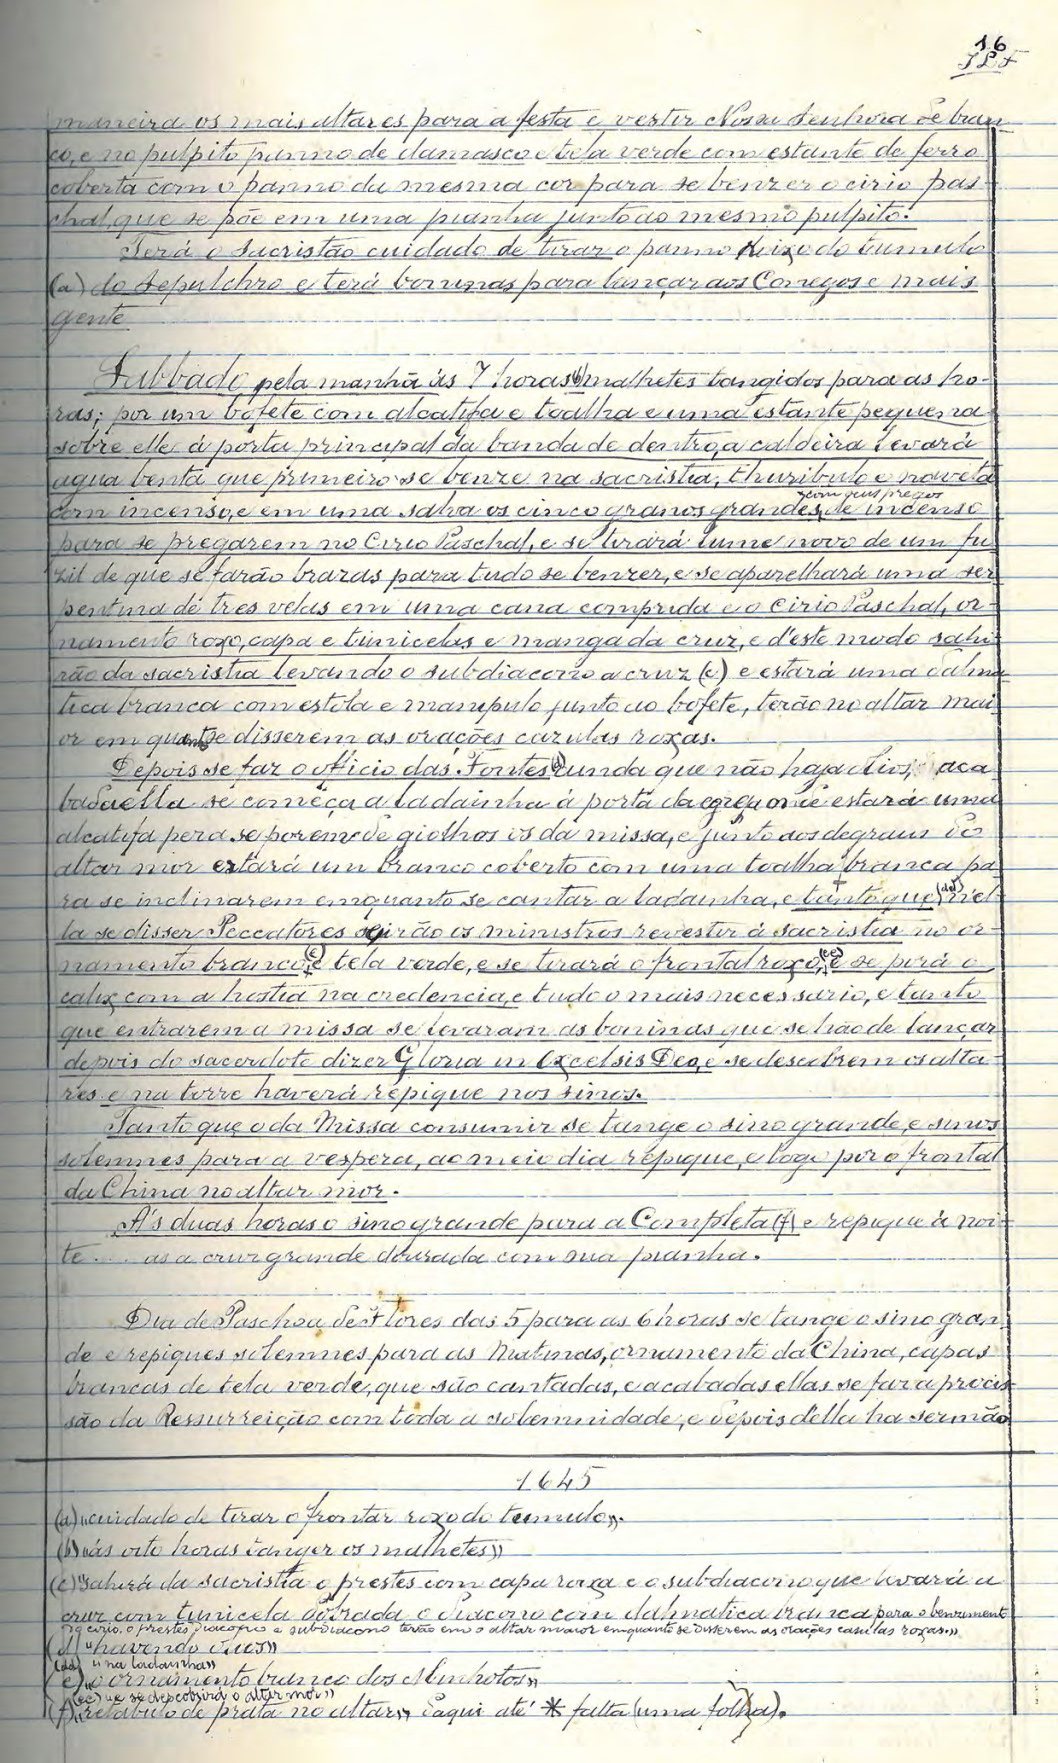 16
maneira os mais altares para a festa e vestir Nossa Senhora de bran
co, e no pulpito panno de damasco e tela verde com estante de ferro
coberta com o panno da mesma cor para se benzer o cirio pas-
chal, que se põe em uma pianha junto ao mesmo pulpito.
Terá o Sacristão cuidado de tirar o panno roixo do tumulo
(a) do Sepulchro e terá boninas para lançar aos Conegos e mais
gente
Sabbado pela manhã ás 7 horas (b) malhetes tangidos para as ho-
ras; por um bofete com alcatifa e toalha e uma estante pequena
sobre elle á porta principal da banda de dentro, a caldeira levará
agua benta que primeiro se benze na sacristia, thuribulo e naveta
com incenso, e em uma salva os cinco granos grandes, com seus pregos de incenso
para se pregarem no Cirio Paschal, e se tirará lume novo de um fu
zil de que se farão brazas para tudo se benzer, e se aparelhará uma ser
pentina de tres velas em uma cana comprida e o Cirio Paschal, or-
namento roxo, capa e tunicelas e manga da cruz, e d'este modo sahi-
rão da sacristia levando o subdiacono a cruz (c) e estará uma dalma
tica branca com estola e manipulo junto ao bofete, terão no altar mai
or em quanto se disserem as orações cazulas roxas.
Depois se faz o officio das Fontes (d) ainda que não haja Olios, aca
bada ella se começa a ladainha á porta da egreja onde estará uma
alcatifa pera se porem de giolhos os da missa, e junto aos degraus do
altar mor estará um branco coberto com uma toalha branca pa
ra se inclinarem emquanto se cantar a ladainha, e tanto que (dd) n'el-
la se disser Peccatores se irão os ministros revestir á sacristia no or-
namento branco (e) e tela verde, e se tirará o frontal roxo, (ee) e se porá o
calix com a hostia na credencia, e tudo o mais necessario, e tanto
que entrarem a missa se levaram as boninas que se hão de lançar
depois do sacerdote dizer Gloria in Excelsis Deo, e se descobrem os alta-
res e na torre haverá repique nos sinos.
Tanto que o da Missa consumir se tange o sino grande, e sinos
solemnes para a vespera, ao meio dia repique, e logo por o frontal
da China no altar mor.
A's duas horas o sino grande para a Completa (f) e repique á noi-
te .... as a cruz grande dourada com sua pianha.
Dia de Paschoa de Flores das 5 para as 6 horas se tange o sino gran
de e repiques solemnes para as Matinas, ornamento da China, capas
brancas de tela verde, que são cantadas, e acabadas ellas se fara a procis
são da Ressurreição com toda a solemnidade, e depois d'ella ha sermão
1645
(a) "cuidado de tirar o frontar roxo do tumulo".
(b) "ás oito horas tanger os malhetes"
(c) "sahirá da sacristia o prestes com capa roxa e o subdiacono que levará a
cruz com tunicela dobrada o diacono com dalmatica branca para o benzimento
do cirio, o prestes diacono e subdiacono terão em o altar maior emquanto se disserem as orações casulas roxas."
(d) "havendo oleos"
(dd) "na ladainha"
(e) "o ornamento branco dos Minhotos"
(ee) "e se descobrirá o altar mor"
(f) "retabulo de prata no altar" daqui até * falta (uma folha).